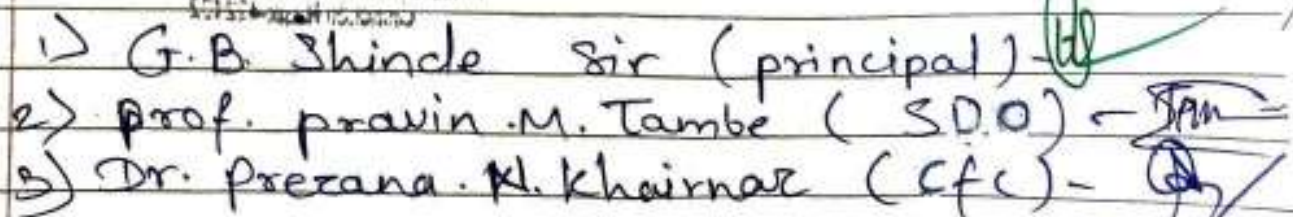 1) G.B. Shinde Sir (principal) -
2) prof. pravin .M. Tambe ( S.D.O ) -
3) Dr. Prerana . N. Khairnar ( Cfc ) -